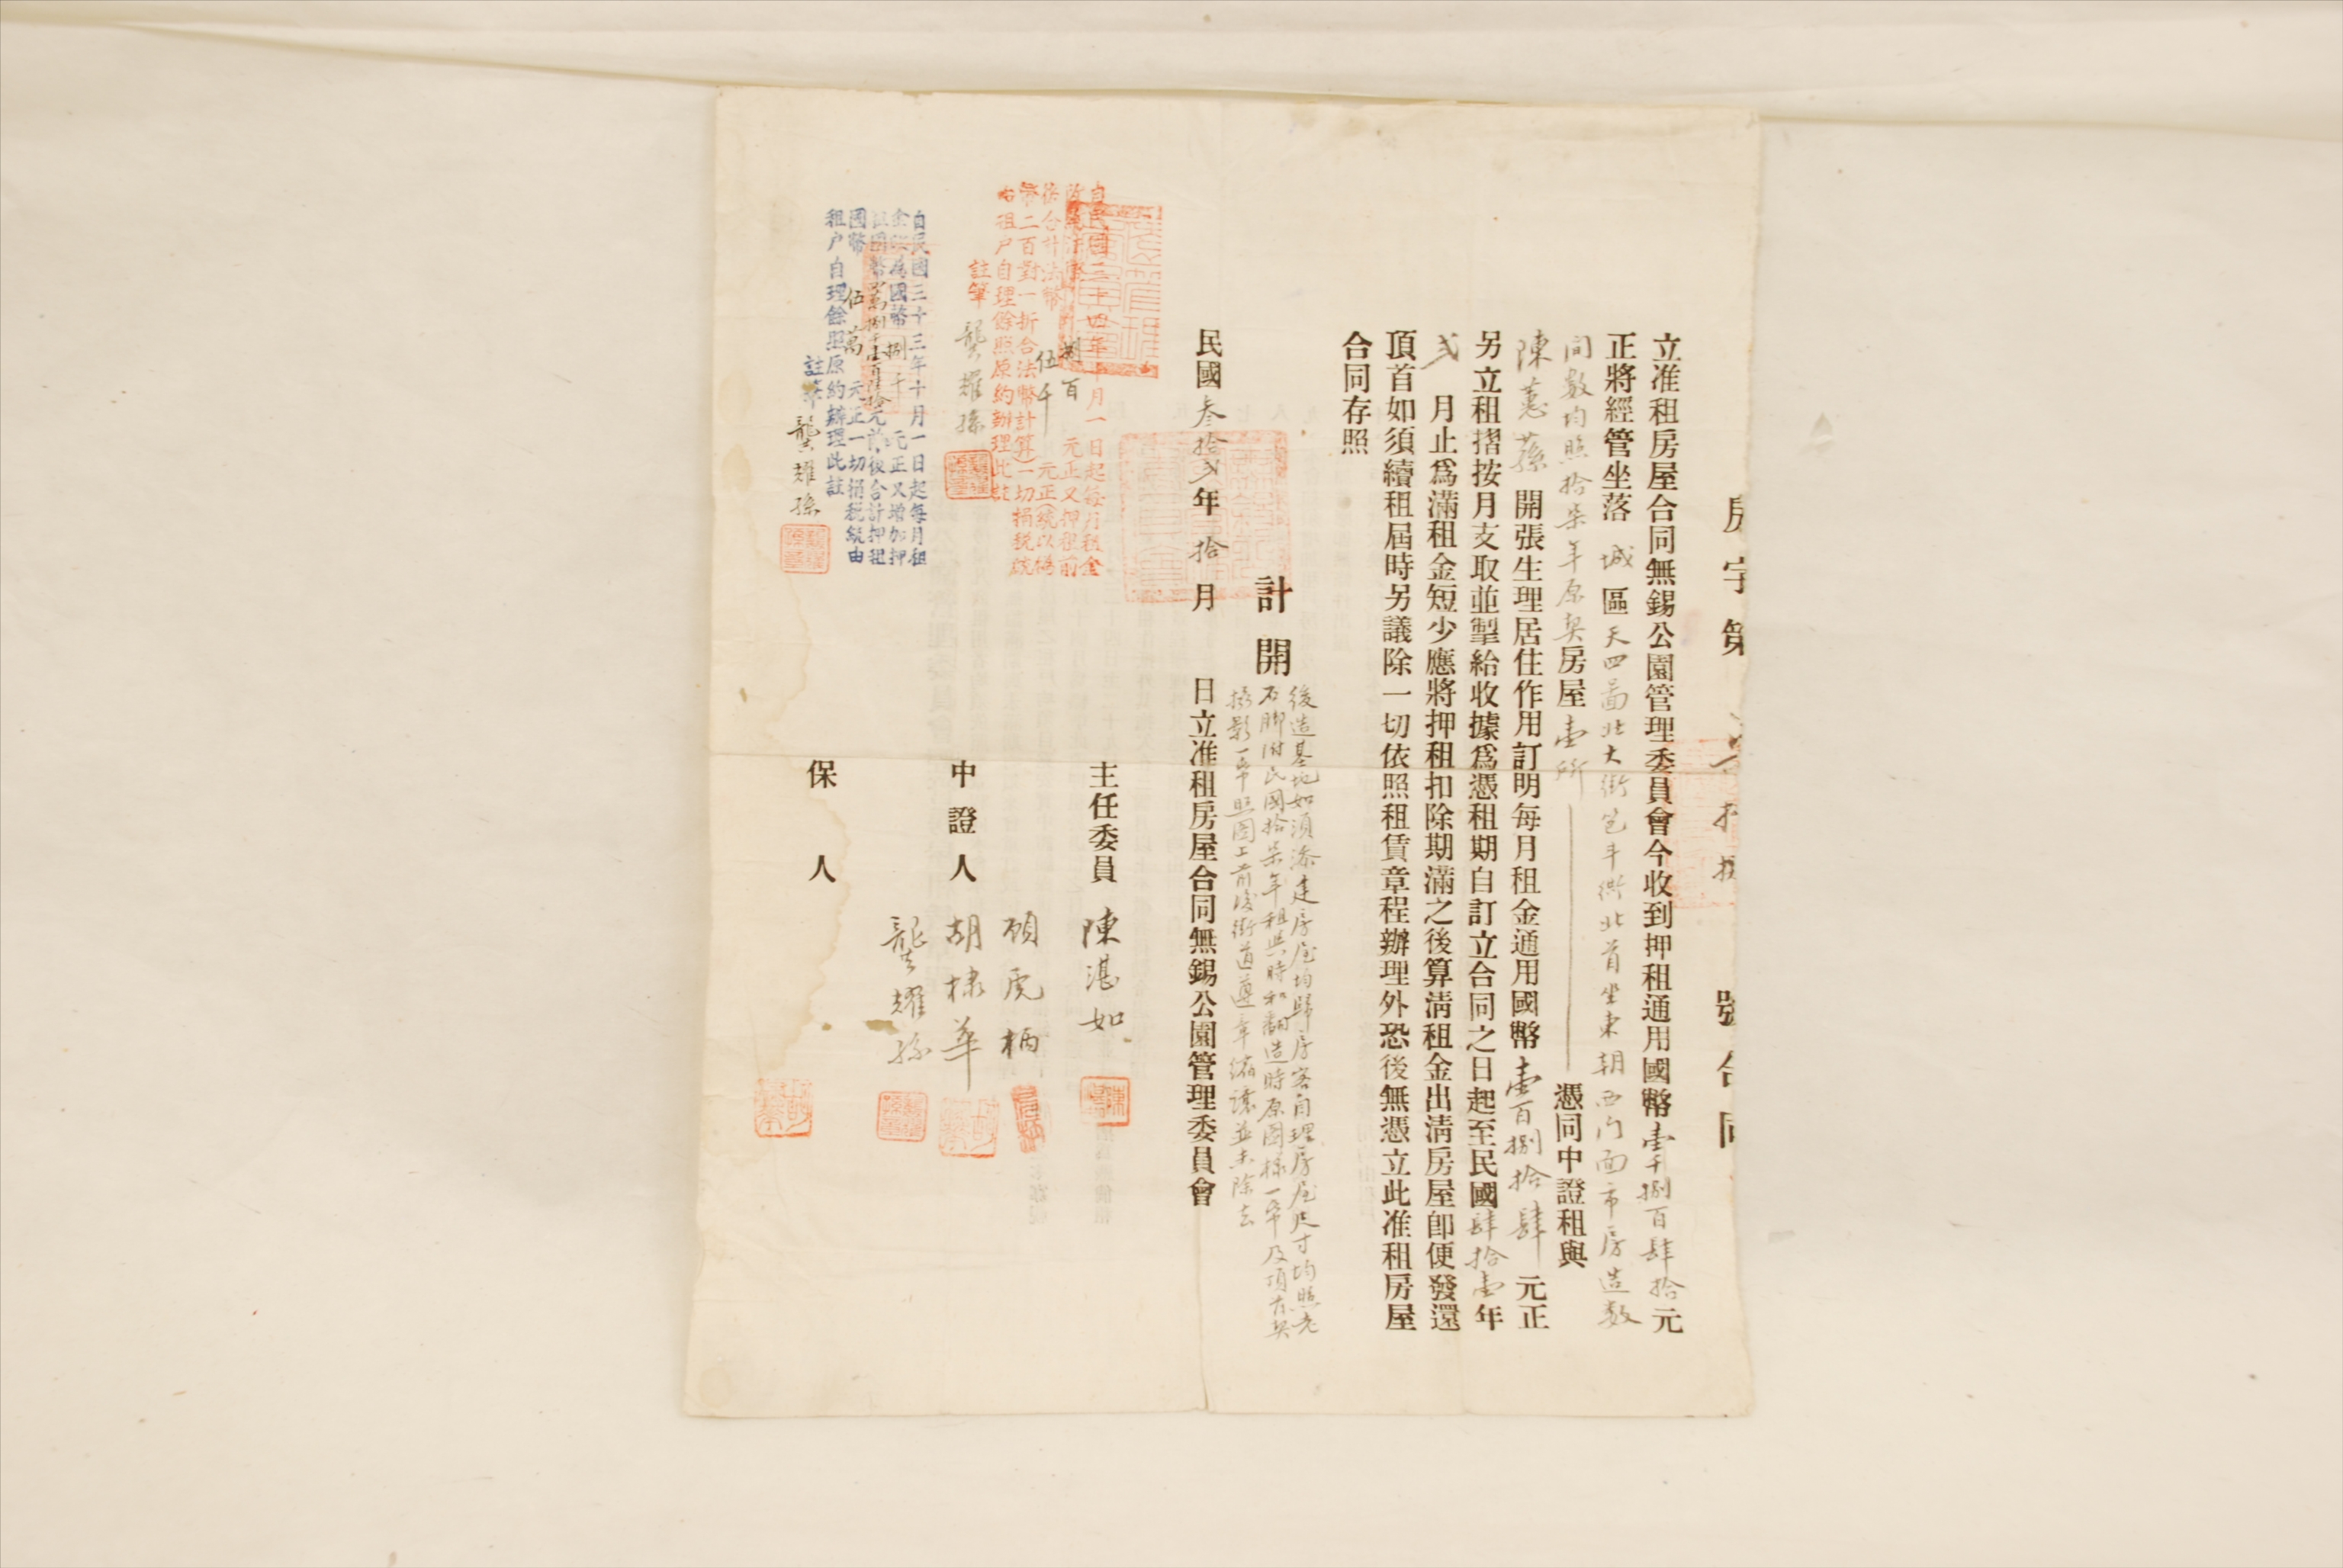 房字第 拾 號合同
立准租房屋合同無錫公園管理委員會今收到押租通用國幣壹千捌百肆拾元
正將經管坐落 城 區天四啚北大街笆斗衖北首坐東朝西門面市房造数
间数均照拾柒年原契房屋壹所 憑同中證租與
陳蕙蓀 開張生理居住作用訂明每月租金通用國幣壹百捌拾肆 元正
另立租摺按月支取並掣給收據爲憑租期自訂立合同之日起至民國肆拾壹年
弍 月止爲滿租金短少應將押租扣除期滿之後算清租金出清房屋卽便發還
頂首如須續租屆時另議除一切依照租賃章程辦理外恐後無憑立此准租房屋
合同存照
計開
後造基地如須添建房屋均歸房客自理房屋尺寸均照老
石脚附民國拾柒年租與時和翻造時原圖樣一帋及頂首契
攝影一帋照圖上前後街道遵章縮讓並未除去
民國叁拾弍年拾月 日立准租房屋合同無錫公園管理委員會
主任委員 陳湛如
顧虎炳
中證人 胡棣華
龔耀孫
保人
自民國三十四年十月一日起每月租金
捌百 元正又押租前
保合計法幣 伍千 元正(統以僞
幣二百對一折合法幣計算)一切捐稅統
由租户自理餘照原約辦理此註
註筆 龔耀孫
自民國三十三年十月一日起每月租
金改為國幣 捌千 元正又增加押
租國幣 元前後合計押租
國幣 伍萬 元正一切捐稅統由
租户自理餘照原約辦理此註
註筆 龔耀孫